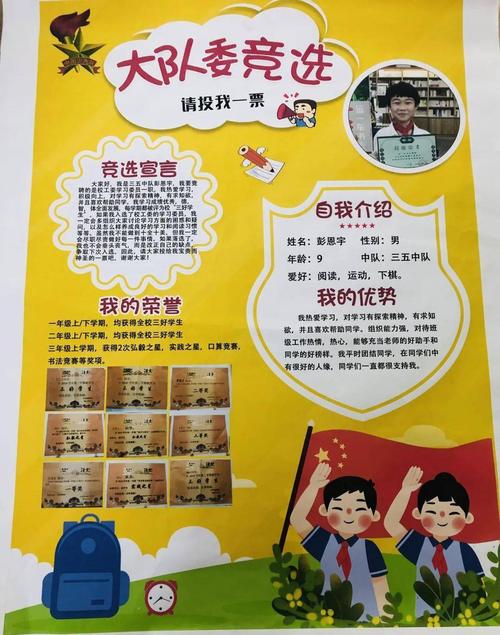 大队委竞选
请投我一票
竞选宣言
大家好，我是三五中队彭恩宇，我要竞
聘的是校工委学习委员一职。我热爱学习，
积极向上，对学习有探索精神，有求知欲，
并且喜欢帮助同学。我学习成绩优秀，德、
智、体全面发展，每学期都被评为校“三好学
生”。如果我入选了校工委的学习委员，我
一定会多组织大家讨论学习方面的困惑和疑
问，以及怎么样养成良好的学习和阅读习惯
等等。虽然我不能做到十全十美，但我一定
会尽职尽责做好每一件事情，如果落选了，
我也不会垂头丧气，而是改正自己的缺点，
争取下次入选。因此，请大家投给我宝贵而
神圣的一票吧，谢谢大家！
自我介绍
姓名：彭恩宇 性别：男
年龄：9 中队：三五中队
爱好：阅读，运动，下棋。
我的优势
我热爱学习，对学习有探索精神，有求知
欲，并且喜欢帮助同学。组织能力强，对待班
级工作热情，热心，能够充当老师的好助手和
同学的好榜样。我平时团结同学，在同学们中
有很好的人缘，同学们一直都很支持我。
我的荣誉
一年级上/下学期，均获得全校三好学生
二年级上/下学期，均获得全校三好学生
三年级上学期，获得2次弘毅之星，实践之星，口算竞赛，
书法竞赛等奖项。
三好学生
二等奖
弘毅之星
二等奖
一等奖
实践之星
三好学生